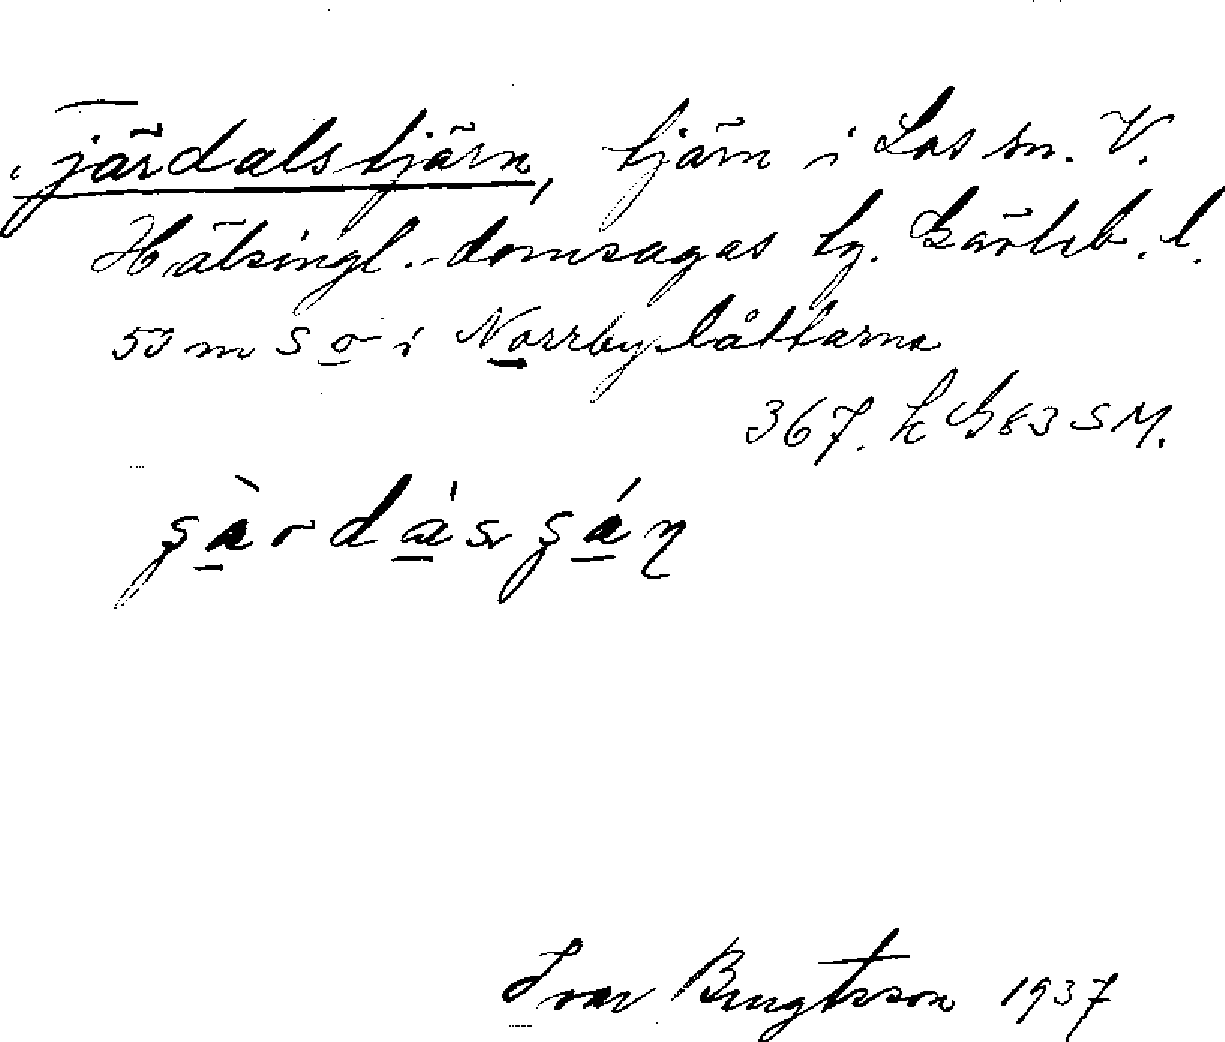 Tjärdalstjärn, tjärn i Los sn. V.
Hälsingl. domsagas tg. Gävleb. l.
50 m S o i Norrbyslåttarna
367. k G 83 S M.
Ivar Bengtsson 1937